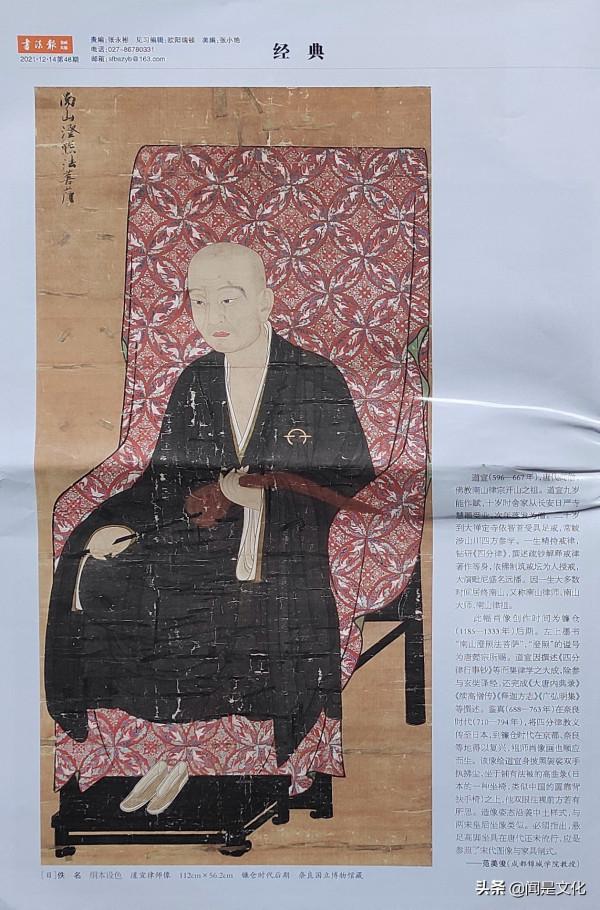 书法报
责编:张永彬 见习编辑:欧阳瑞祯 美编:张小艳
电话:027-86780331
2021·12·14第48期
邮箱:sfbszyb@163.com
经典
南山澄照法菩萨
道宣(596—667年),唐代
佛教南山律宗开山之祖。道宣九岁
能作赋,十岁时舍家从长安日严寺
到大禅定寺依智首受具足戒,常跋
涉山川四方参学。一生精持戒律,
钻研《四分律》,撰述疏钞解释戒律
著作等身,依佛制筑戒坛为人授戒,
大演毗尼盛名远播。因一生大多数
时间居终南山,又称南山律师、南山
大师、南山律祖。
此幅肖像创作时间为镰仓
(1185—1333年)后期。左上墨书
“南山澄照法菩萨”,“澄照”的谥号
为唐懿宗所赐。道宣因撰述《四分
律行事钞》等而集律学之大成,除参
与玄奘译经,还完成《大唐内典录》
《续高僧传》《释迦方志》《广弘明集》
等撰述。鉴真(688—763年)在奈良
时代(710—794年),将四分律教义
传至日本,到镰仓时代在京都、奈良
等地得以复兴,祖师肖像画也顺应
而生。该像绘道宣身披黑袈裟双手
执拂尘,坐于铺有法被的高曲录(日
本的一种坐椅,类似中国的圆靠背
扶手椅)之上,他双眼往视前方若有
所思。造像姿态沿袭中土样式,与
两宋皇后坐像类似。必须指出,悬
足高脚坐具在唐代还未流行,应是
参照了宋代图像与家具制式。
——范美俊(成都锦城学院教授)
[日]佚 名 绢本设色 道宣律师像 112cm×56.2cm 镰仓时代后期 奈良国立博物馆藏
头条 @闻是文化